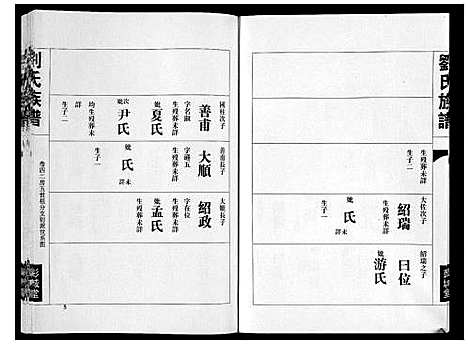 劉氏族譜
彭城堂
生子二
大佐次子
紹瑞
生歿葬未詳
妣 氏 未詳
生子一
紹瑞之子
日位
妣游氏
國柱次子
善甫
字名淑
生歿葬未詳
妣夏氏
次妣尹氏
均生歿葬未詳
生子二
善甫長子
大順
字遜五
生歿葬未詳
妣 氏 未詳
生子一
大順長子
紹政
字在位
生歿葬未詳
妣孟氏
生歿葬未詳
生子二
劉氏族譜
彭城堂
5